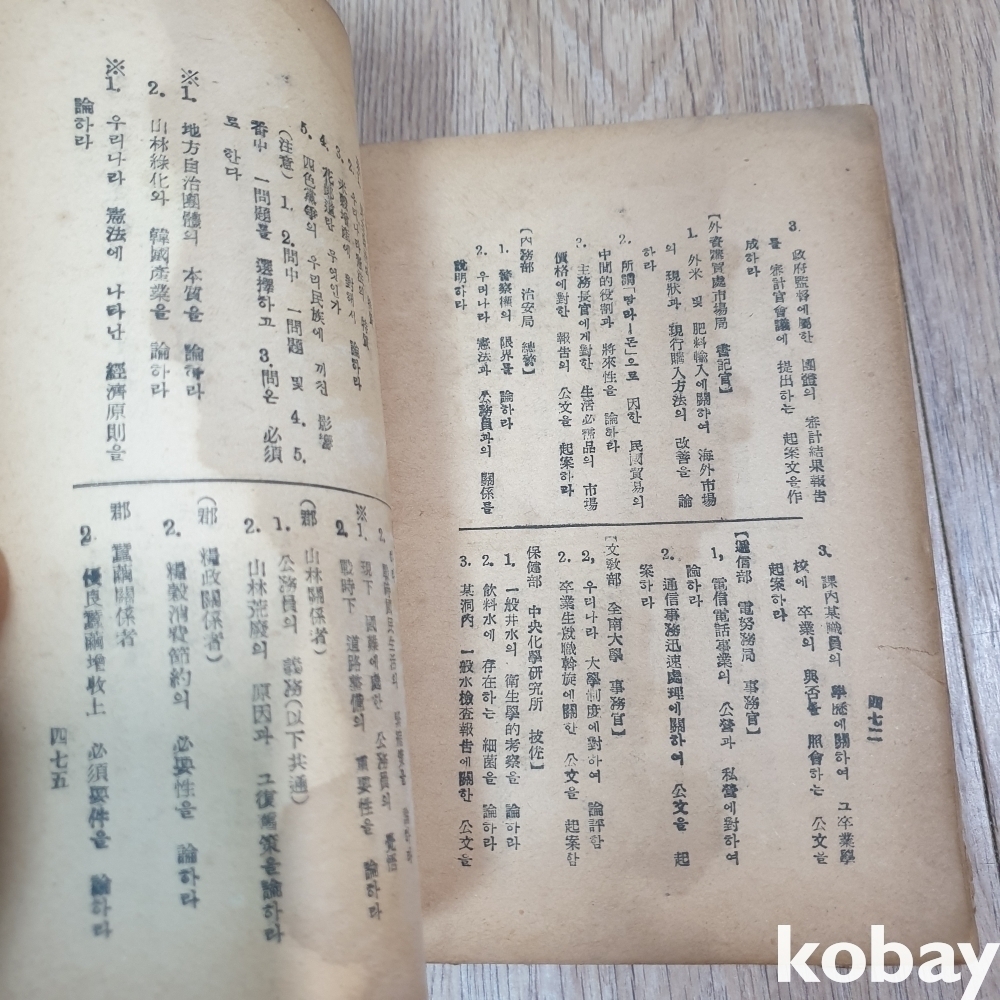 3. 政府監督에屬한 團體의 審計結果報告
를 審計官會議에 提出하는 起案文을作
成하라
【外資購買處市場局 書記官】
1. 外米 및 肥料輸入에關하여 海外市場
의 現狀과 現行購入方法의 改善을 論
하라
2. 所謂「땅라ー몬」으로 因한 民國貿易의
中間的役割과 將來性을 論하라
3. 主務長官에게對한 生活必需品의 市場
價格에對한 報告의 公文을 起案하라
【內務部 治安局 總警】
1. 警察權의 限界를 論하라
2. 우리나라 憲法과 公務員과의 關係를
說明하라
3. 課內某職員의 學歷에關하여 그卒業學
校에 卒業의 與否를 照會하는 公文을
起案하라
【遞信部 電務局 事務官】
1, 電信電話事業의 公營과 私營에對하여
論하라
2. 通信事務迅速處理에關하여 公文을 起
案하라
【文敎部 全南大學 事務官】
2, 우리나라 大學制度에對하여 論評함
2. 卒業生就職斡旋에關한 公文을 起案함
保健部 中央化學硏究所 技佐】
1, 一般井水의 衛生學的考察을 論하라
2. 飮料水에 存在하는 細菌을 論하라
3. 某洞內 一般水檢査報告에關한 公文을
四七二
論하라
5. 四色黨爭의 우리民族에 끼친 影響
(注意) 1. 2.問中 一問題 및 4. 5.
番中 一問題를 選擇하고 3.問은 必須
로 한다
※1. 地方自治團體의 本質을 論하라
2. 山林綠化와 韓國產業을 論하라
※1. 우리나라 憲法에 나타난 經濟原則을
論하라
※1. 現下 國難에處한 公務員의 覺悟
2. 戰時下 道路整備의 重要性을 論하라
(郡 山林關係者)
1. 公務員의 義務(以下共通)
2. 山林荒廢의 原因과 그復舊策을論하라
(郡 糧政關係者)
2. 糧穀消費節約의 必要性을 論하라
郡 蠶繭關係者
2 優良蠶繭增收上 必須要件을 論하라
四七五
kobay